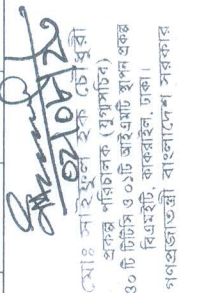 ০২/০৮/২১
মোঃ সাইফুল হক চৌধুরী
প্রকল্প পরিচালক (যুগ্মসচিব)
৩০ টি টিটিসি ও ০১টি আইএমটি স্থাপন প্রকল্প
বিএমইটি, কাকরাইল, ঢাকা।
গণপ্রজাতন্ত্রী বাংলাদেশ সরকার